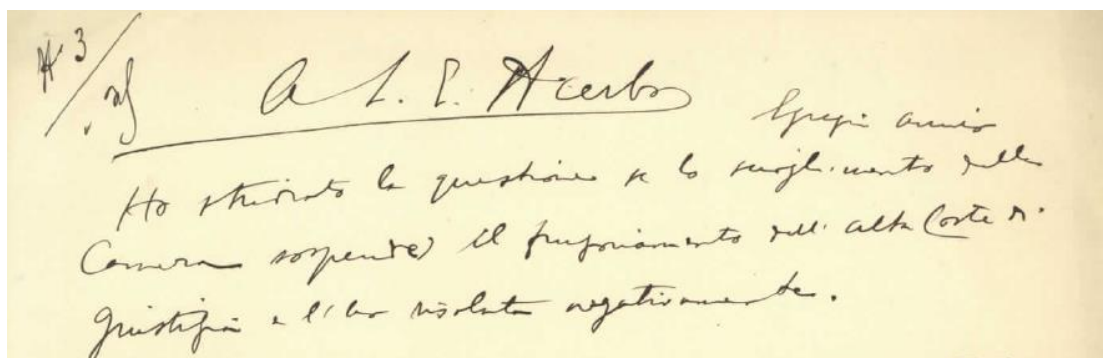 A 3/
A S. E. Acerbo
Egregio amico
Ho studiato la questione se lo scioglimento della
Camera sospende il funzionamento dell'alta Corte di
Giustizia e l'ho risolta negativamente.